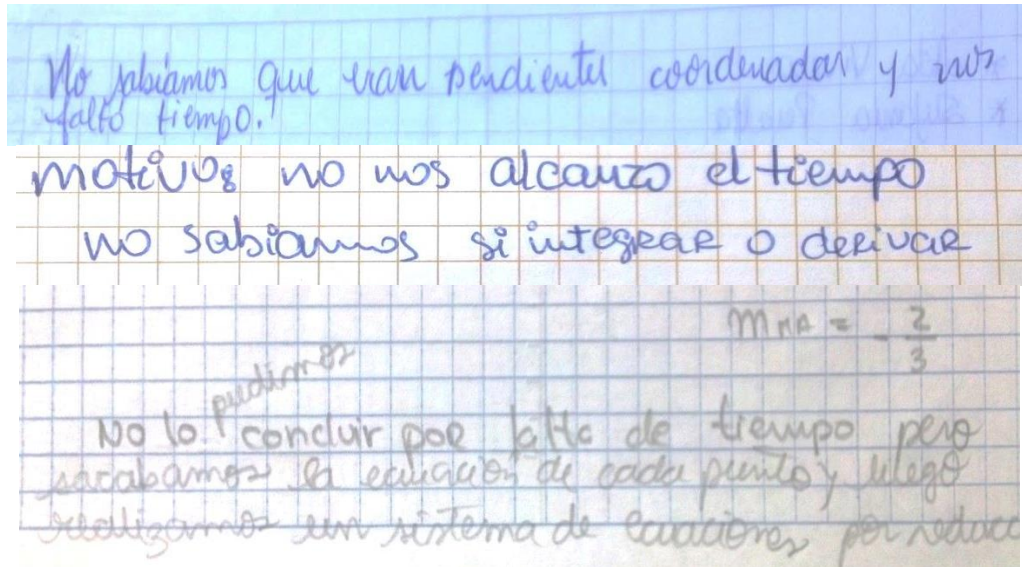 No sabiamos que eran pendientes coordenadas y nos
falto tiempo.
motivos no nos alcanzo el tiempo
no sabiamos si integrar o derivar
m MA = - 2/3
pudimos
No lo concluir por falta de tiempo pero
sacabamos la ecuación de cada punto y luego
realizamos un sistema de ecuaciones por reducc